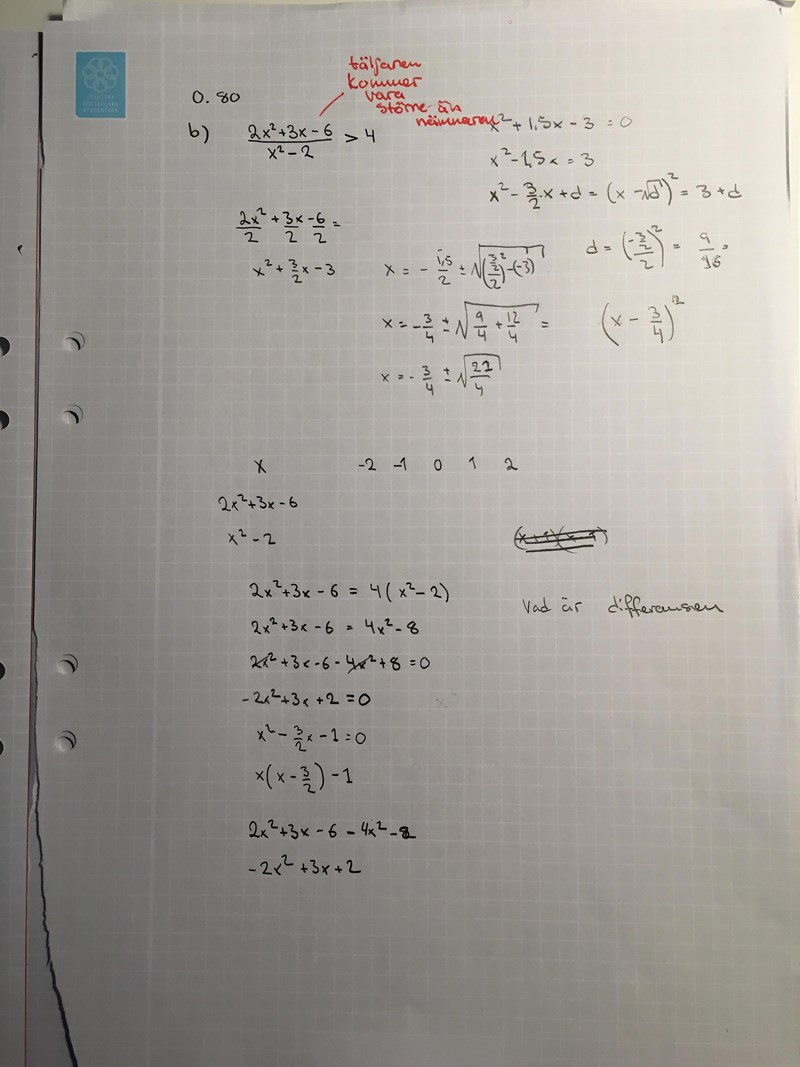 0.80
täljaren
kommer
vara
större än
nämnaren
b) (2x²+3x-6)/(x²-2) > 4
x²+1,5x-3 = 0
x²-1,5x = 3
x² - 3/2 x + d = (x - √d)² = 3 + d
2x²/2 + 3x/2 - 6/2 =
x² + 3/2 x - 3
x = - 1,5/2 ± √((3/2 / 2)² - (-3))
d = ((-3/2)/2)² = 9/16 =
x = - 3/4 ± √(9/4 + 12/4) =
(x - 3/4)²
x = - 3/4 ± √(21/4)
x -2 -1 0 1 2
2x²+3x-6
x²-2
2x²+3x-6 = 4(x²-2)
Vad är differensen
2x²+3x-6 = 4x²-8
2x²+3x-6-4x²+8 = 0
-2x²+3x+2 = 0
x² - 3/2 x - 1 = 0
x(x - 3/2) - 1
2x²+3x-6-4x²-8
-2x²+3x+2